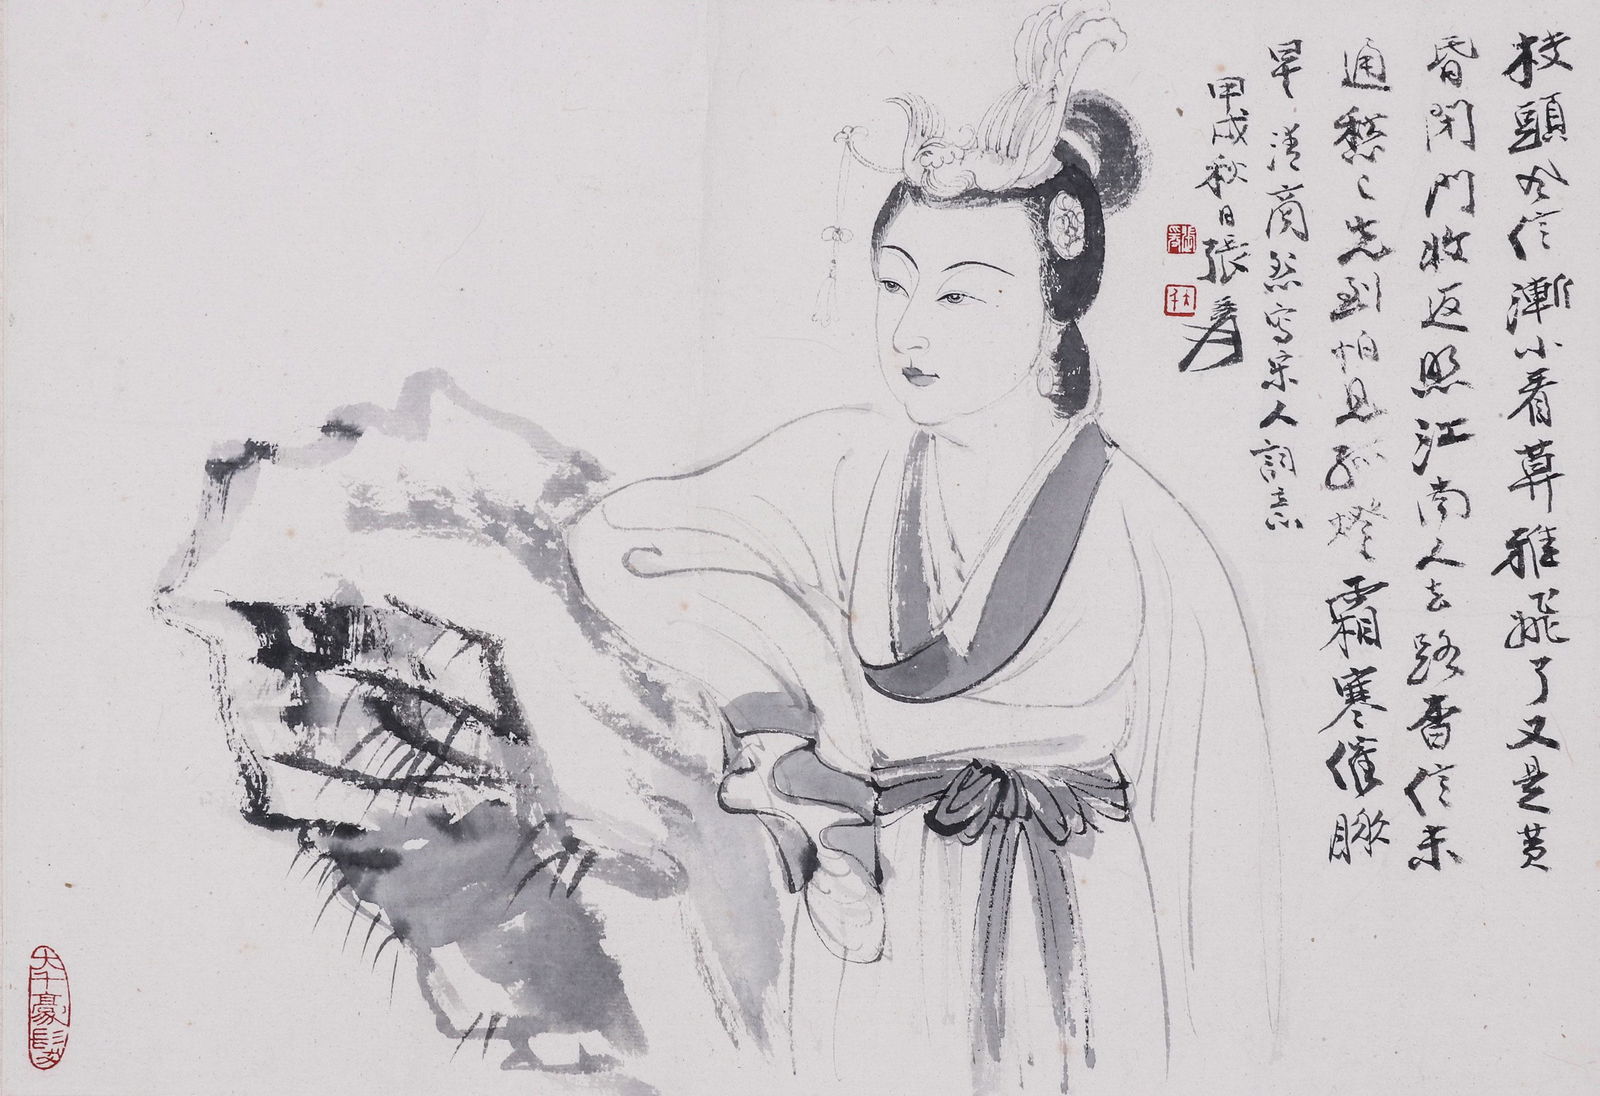 枝頭風信漸小看暮雅飛了又是黃
昏閉門收返照江南人去路杳信未
通愁已先到怕見孤燈霜寒催睡
早 清商怨寫宋人詞意
甲戌秋日張爰
張爰
大千
大千豪髮